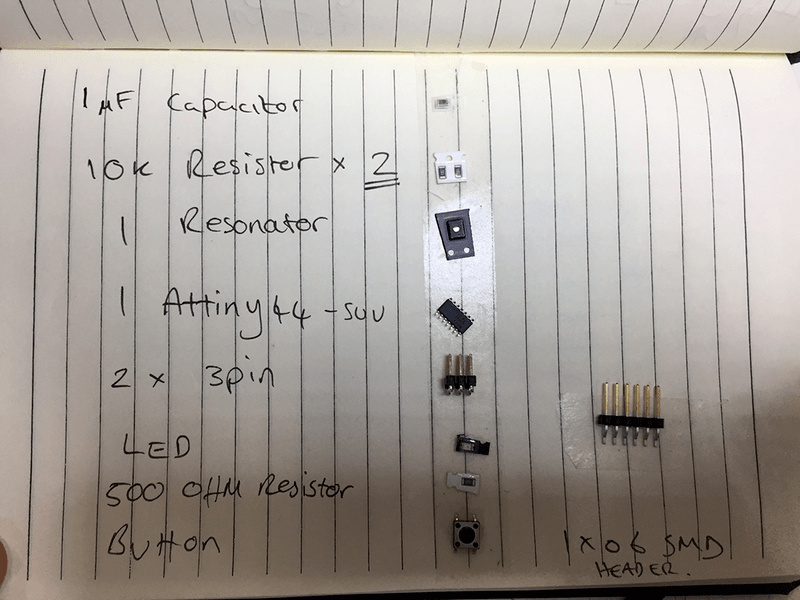 1 µF Capacitor
10K Resistor x 2
1 Resonator
1 Attiny44 - SUU
2 x 3pin
LED
500 OHM Resistor
Button
1x06 SMD
HEADER.